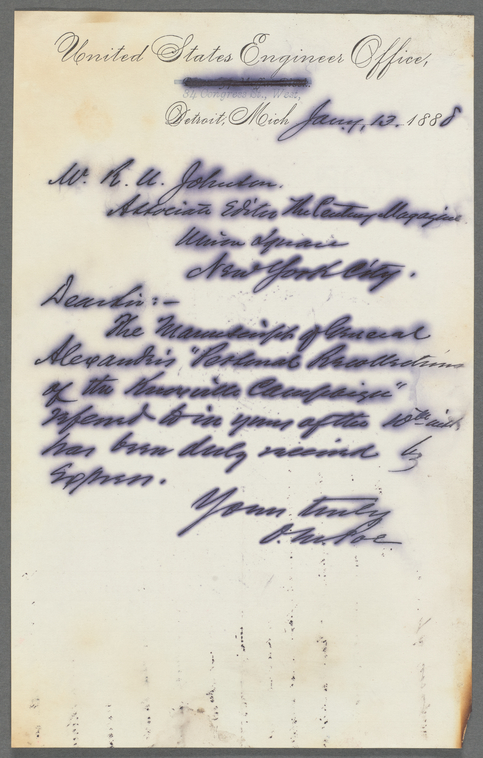 United States Engineer Office,
34 Congress St., West,
Detroit, Mich Jany. 13. 1888
Mr. R. U. Johnson.
Associate Editor The Century Magazine
Union Square
New York City.
Dear Sir:-
The Manuscript of General
Alexander's "Personal Recollections
of the Knoxville Campaign"
referred to in yours of the 10th inst
has been duly received by
Express.
Yours truly
O. M. Poe